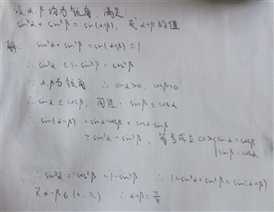 设 α, β 均为锐角, 满足
sin²α + sin²β = sin(α+β), 求 α+β 的值
解: sin²α + sin²β = sin(α+β) ≤ 1
∴ sin²α ≤ 1 - sin²β = cos²β
∵ α, β 为锐角 ∴ sinα > 0, cosβ > 0
∴ sinα ≤ cosβ, 同理: sinβ ≤ cosα
sin(α+β) = sinα cosβ + cosα sinβ
≥ sin²α + sin²β, 等号成立 sinα = cosβ
sinβ = cosα
∴ sin²α = cos²β = 1 - sin²β ∴ 1 = sin²α + sin²β = sin(α+β)
又 α+β ∈ (0, π) ∴ α+β = π/2